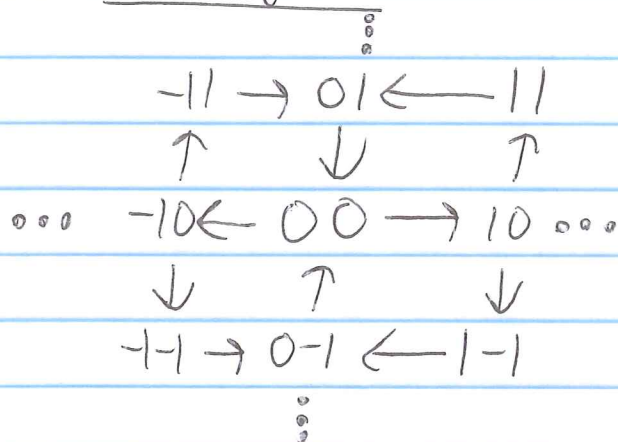 ⋮
-11 → 01 ← 11
↑ ↓ ↑
... -10 ← 00 → 10 ...
↓ ↑ ↓
-1-1 → 0-1 ← 1-1
⋮